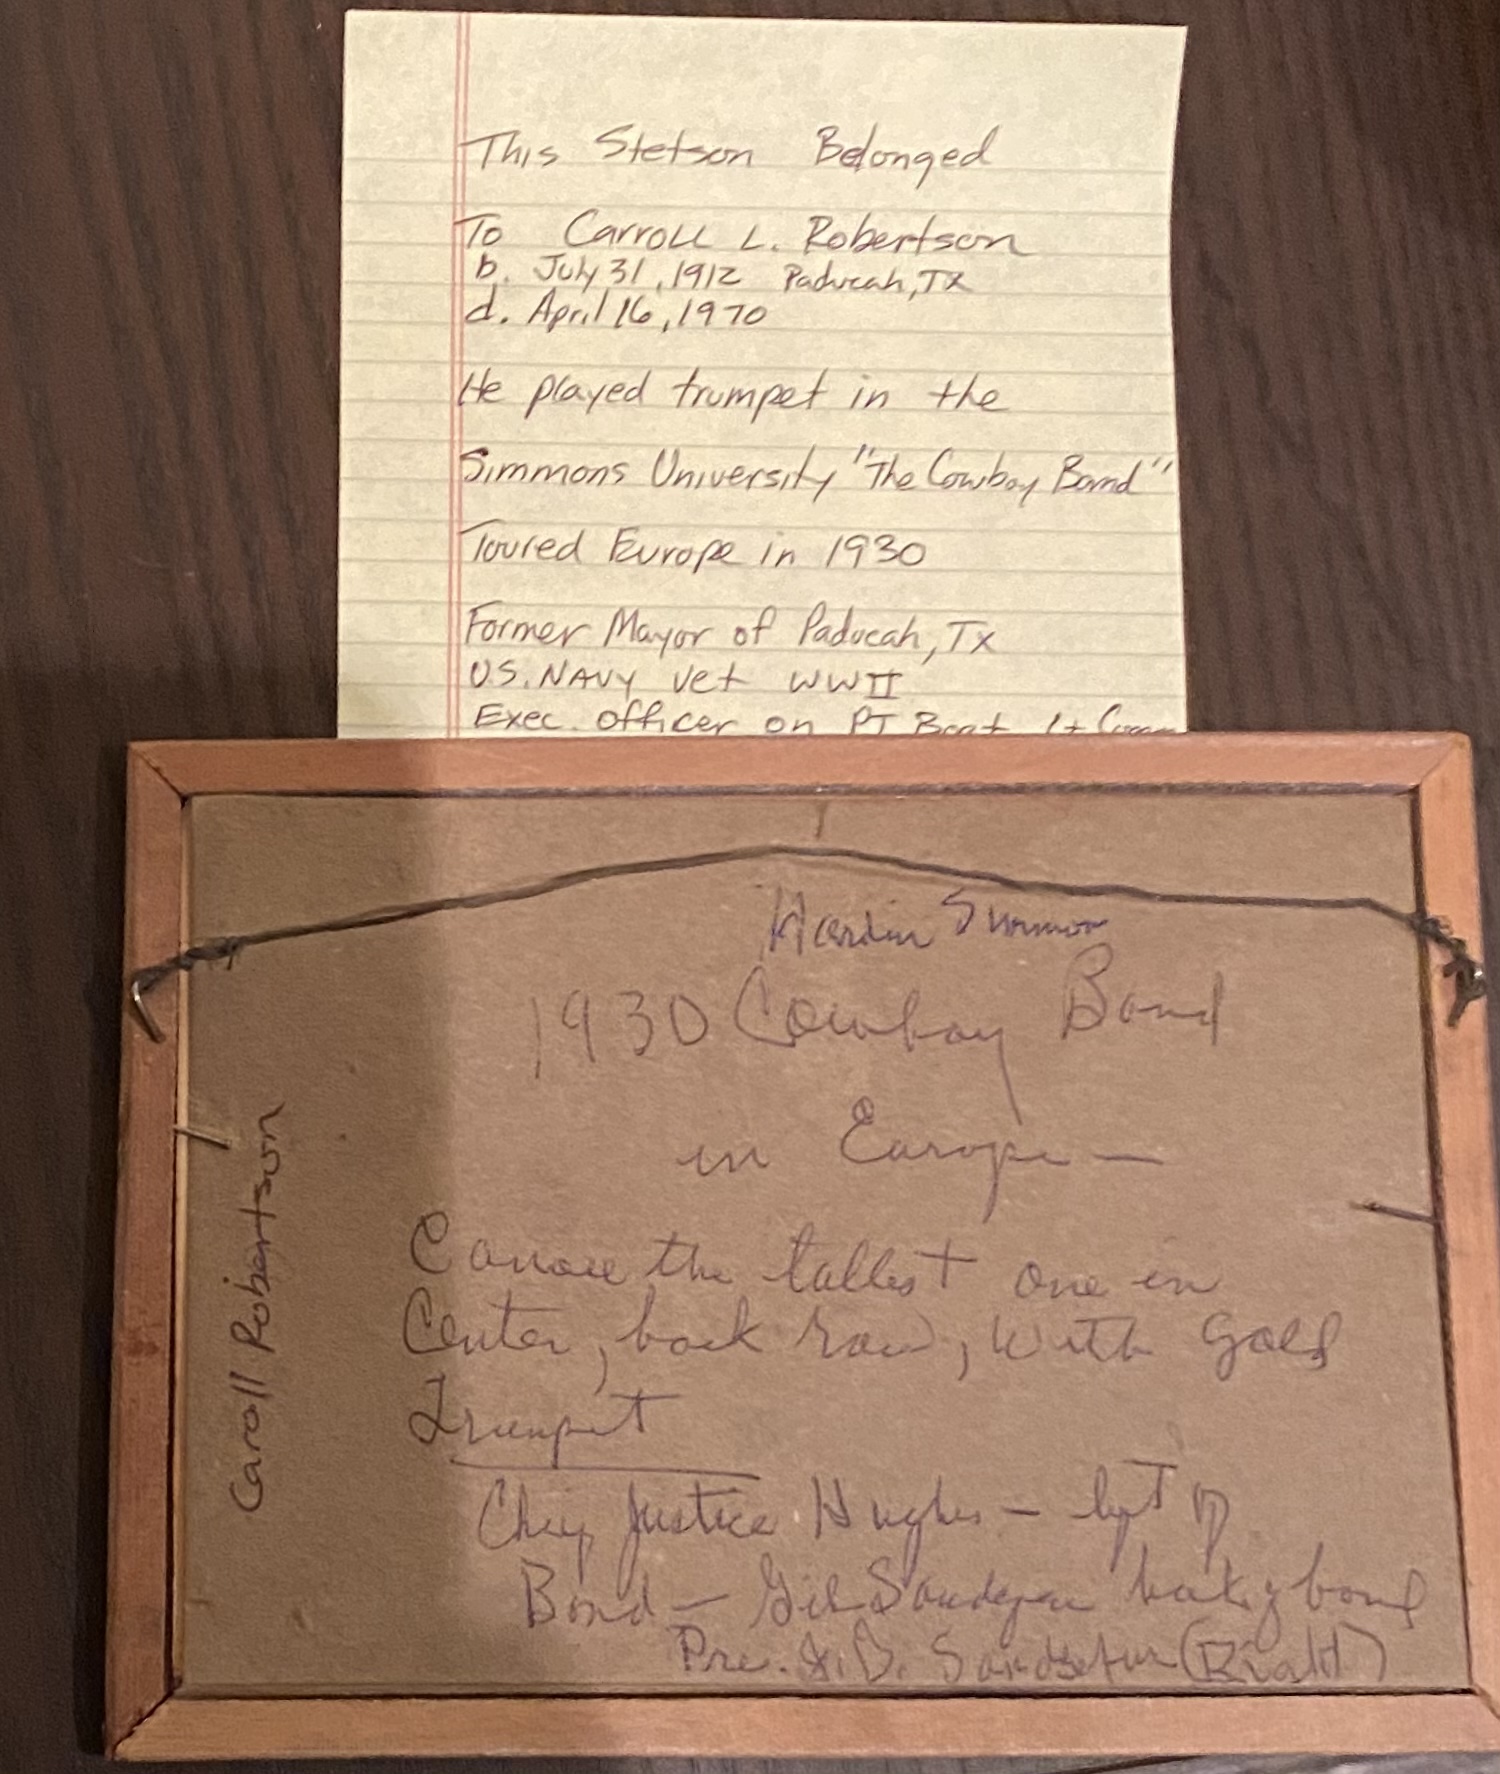 This Stetson Belonged
To Carroll L. Robertson
b. July 31, 1912 Paducah, TX
d. April 16, 1970
He played trumpet in the
Simmons University "The Cowboy Band"
Toured Europe in 1930
Former Mayor of Paducah, Tx
U.S. NAVY Vet WWII
Exec. officer on PT Boat Lt Comm
Hardin Simmon
1930 Cowboy Band
in Europe —
the tallest one in
Center, back row, with Gold
Trumpet
Chief Justice Hughes — left of
Band — Gib Sandefer back of band
Pres. J. D. Sandefer (Right)
Caroll Robertson